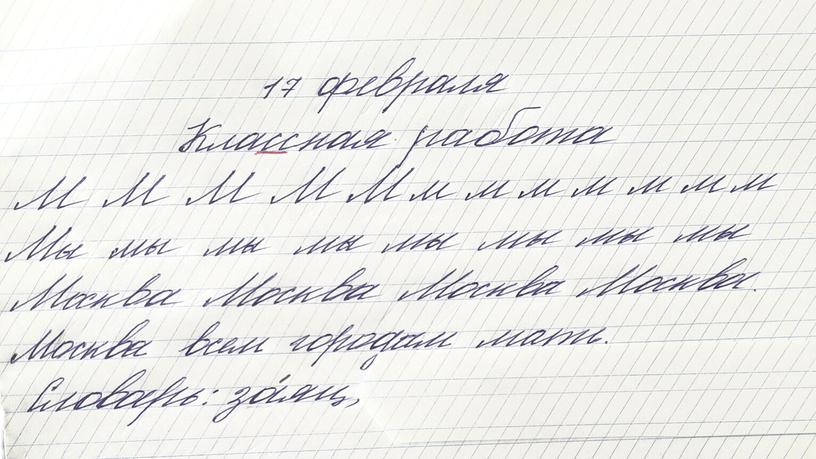 17 февраля
Классная работа
М М М М М м м м м м м м
Мы мы мы мы мы мы мы мы
Москва Москва Москва Москва.
Москва всем городам мать.
Словарь: за́яц,